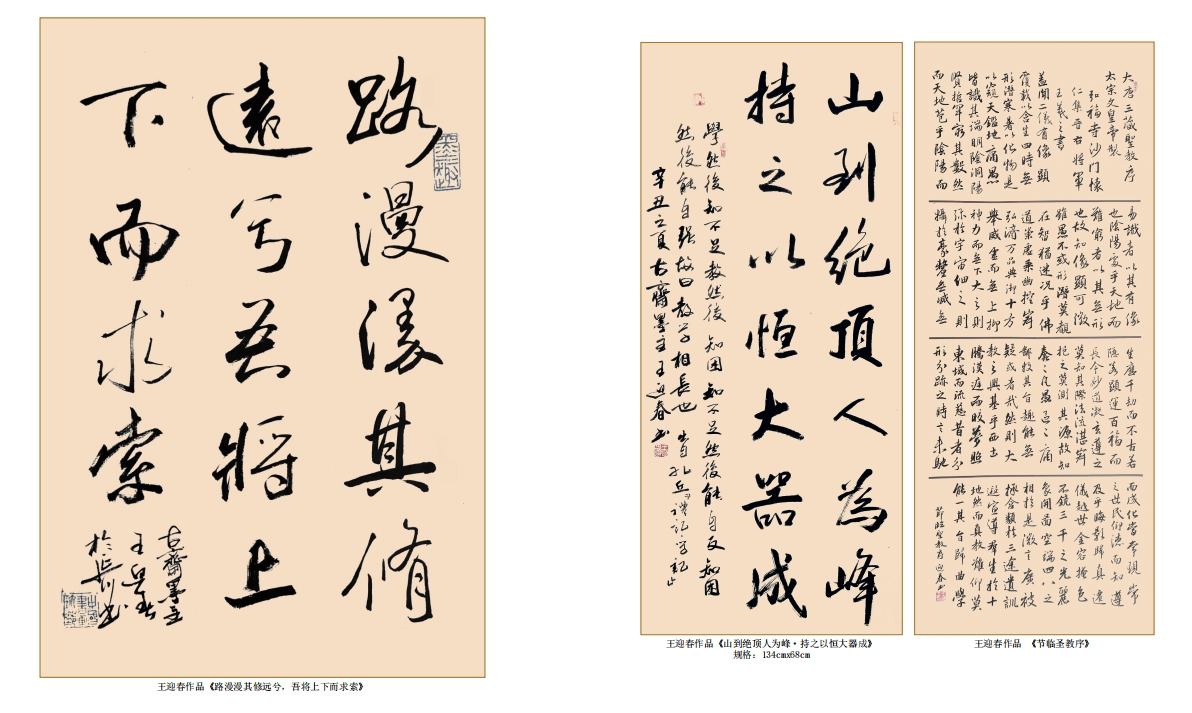 路漫漫其脩
遠兮吾將上
下而求索
古齋墨主
王迎春
於長沙書
王迎春作品《路漫漫其修远兮，吾将上下而求索》
山到绝頂人為峰
持之以恒大器成
學然後知不足教然後知困知不足然後能自反知困
然後能自强故曰教学相長也
辛丑之夏古齋墨主王迎春书
王迎春作品《山到绝顶人为峰·持之以恒大器成》
规格：134cmx68cm
大唐三藏聖教序
太宗文皇帝製
弘福寺沙門懷
仁集晉右將軍
王羲之書
蓋聞二儀有像顯
覆載以含生四時無
形潛寒暑以化物是
以窺天鑑地庸愚
皆識其端明陰洞陽
賢哲罕窮其數然
而天地苞乎陰陽而
易識者以其有像
也陰陽處乎天地而
難窮者以其無形
也故知像顯可徵
雖愚不惑形潛莫覩
在智猶迷况乎佛
道崇虛乘幽控寂
弘濟万品典御十方
舉威靈而無上抑
神力而無下大之則
弥於宇宙細之則
攝於豪釐無滅無
生歷千劫而不古若
隱若顯運百福而
長今妙道凝玄遵之
莫知其際法流湛寂
挹之莫測其源故知
蠢蠢凡愚區區庸
鄙投其旨趣能無
疑或者哉然則大
教之興基乎西土
騰漢庭而皎夢照
東域而流慈昔者分
形分跡之時言未馳
而成化當常現常
之世民仰德而知遵
及乎晦影歸真遷
儀越世金容掩色
不鏡三千之光麗
象開圖空端四八之
相於是微言廣被
拯含類於三途遺訓
遐宣導群生於十
地然而真教難仰莫
能一其旨歸曲學
節臨聖教序迎春书
王迎春作品 《节临圣教序》